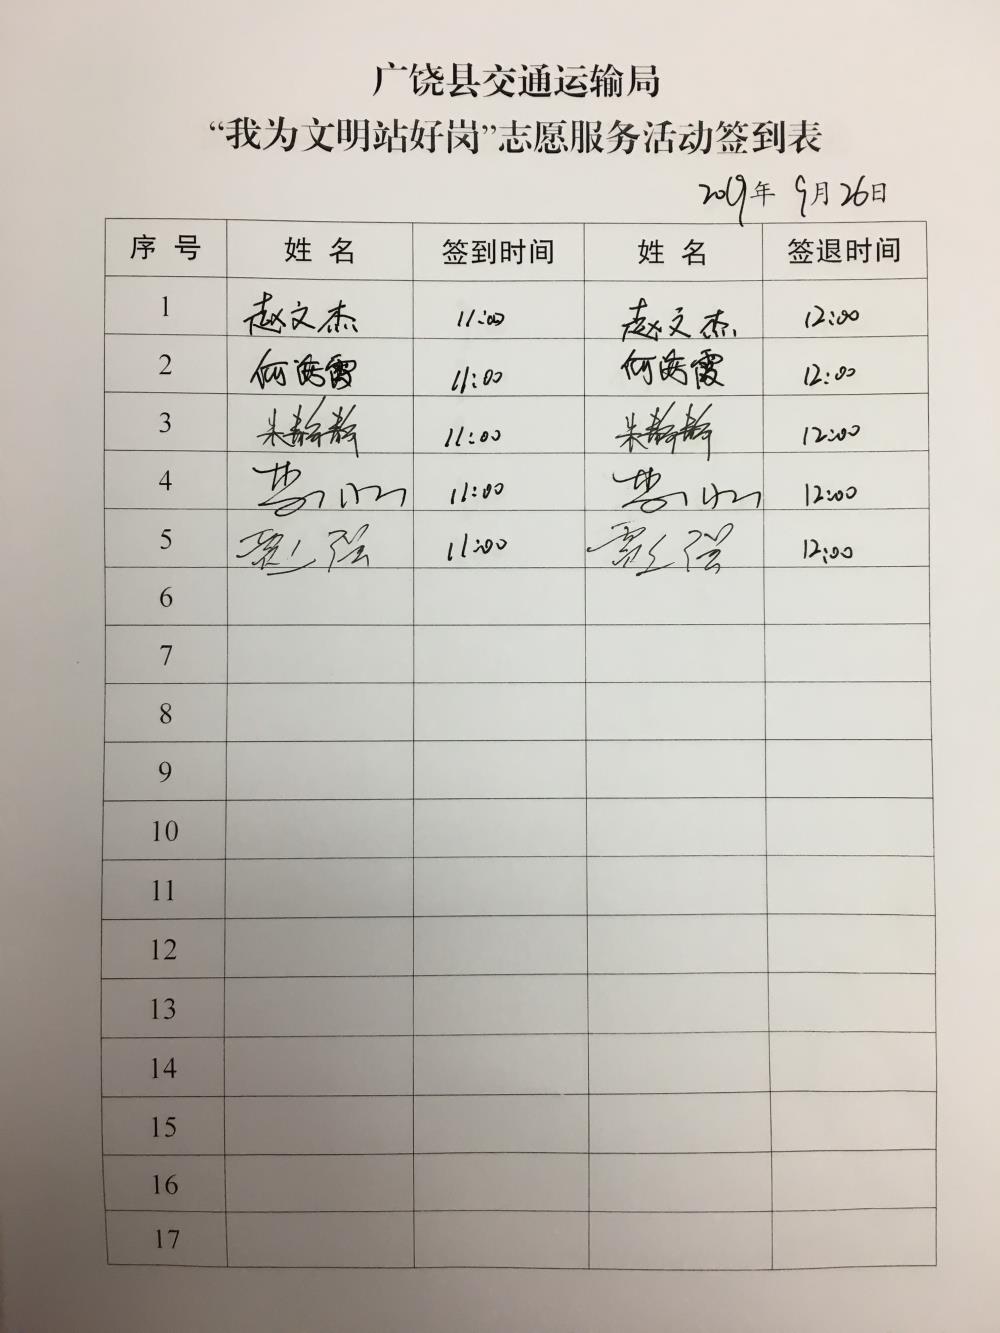 广饶县交通运输局
“我为文明站好岗”志愿服务活动签到表
2019年 9月26日
序号 姓名 签到时间 姓名 签退时间
1 赵文杰 11:00 赵文杰 12:00
2 何海霞 11:00 何海霞 12:00
3 朱静静 11:00 朱静静 12:00
4 11:00 12:00
5 11:00 12:00
6
7
8
9
10
11
12
13
14
15
16
17